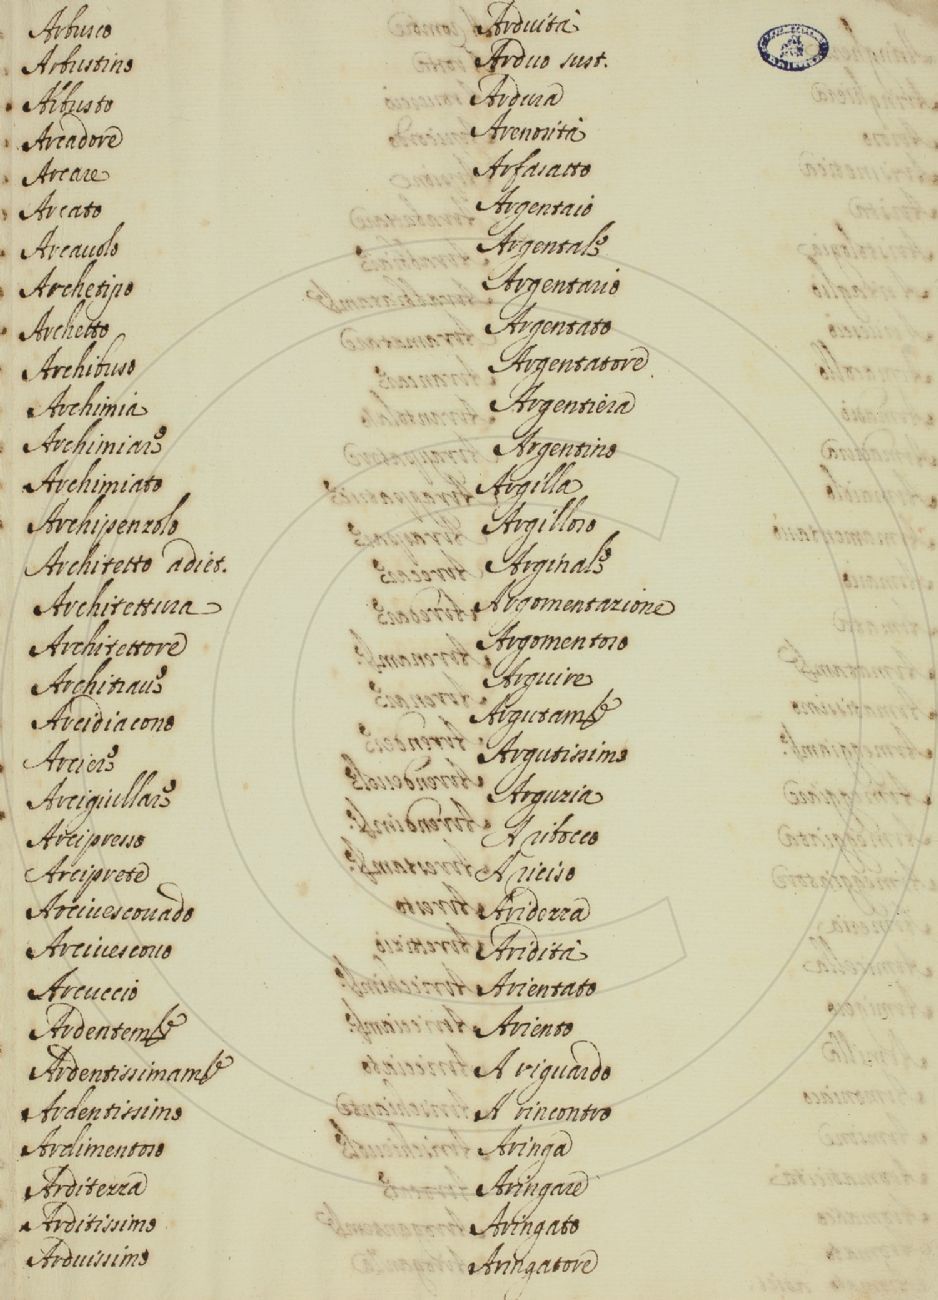 Arbusco
Arbustino
Arbusto
Arcadore
Arcare
Arcato
Arcauolo
Archetipo
Archetto
Archibuso
Archimia
Archimiare
Archimiato
Archipenzolo
Architetto adiet.
Architettura
Architettore
Architraue
Arcidiacono
Arciere
Arcigiullare
Arcipresso
Arciprete
Arciuescouado
Arciuescouo
Arcuccio
Ardentemte
Ardentissimamte
Ardentissimo
Ardimentoso
Arditezza
Arditissimo
Arduissimo
Arduità
Arduo sust.
Ardura
Arenosità
Arfasatto
Argentaio
Argentale
Argentario
Argentato
Argentatore
Argentiera
Argentino
Argilla
Argilloso
Arginale
Argomentazione
Argomentoso
Arguire
Argutamte
Argutissimo
Arguzia
A ribocco
A riciso
Aridezza
Aridità
Arientato
Ariento
A riguardo
A rincontro
Aringa
Aringare
Aringato
Aringatore